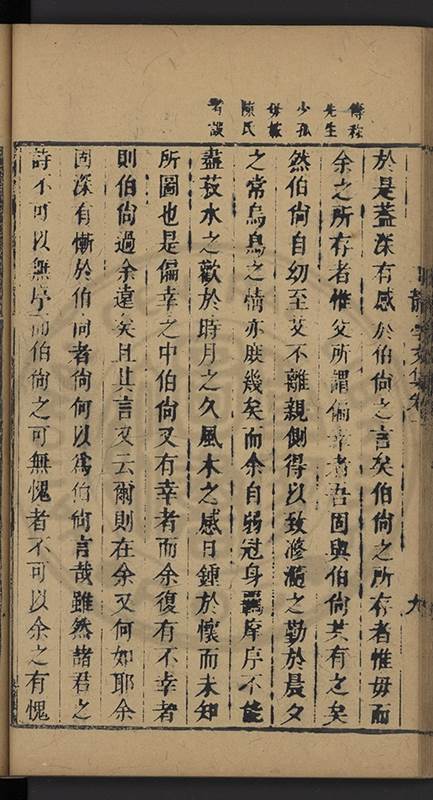 傳稱
先生
少孤
毋
陳氏
者誤
於是蓋深有感於伯尙之言矣伯尙之所存者惟毋而
余之所存者惟父所謂偏幸者吾固與伯尙共有之矣
然伯尙自幼至艾不離親側得以致滫瀡之勤於晨夕
之常烏鳥之情亦庶幾矣而余自弱冠身羈庠序不能
盡菽水之歡於時月之久風木之感日鍾於懷而未知
所圖也是偏幸之中伯尙又有幸者而余復有不幸者
則伯尙過余遠矣且其言又云爾則在余又何如耶余
固深有慚於伯尙者尙何以爲伯尙言哉雖然諸君之
詩不可以無序而伯尙之可無愧者不可以余之有愧